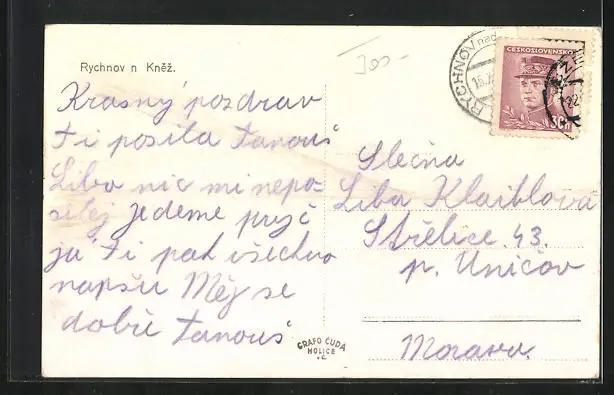 Rychnov n Kněž.
Krasný pozdrav
ti posíla Tanouš
Libo nic mi nepo-
silej jedeme pryč
já ti pak všechno
napšu Měj se
dobře Tanouš
300-
RYCHNOV nad
ČESKOSLOVENSKO
30h
Slečna
Liba Klaiblová
Střelice 43.
p. Uničov
Morava
GRAFO ČUDA
HOLICE